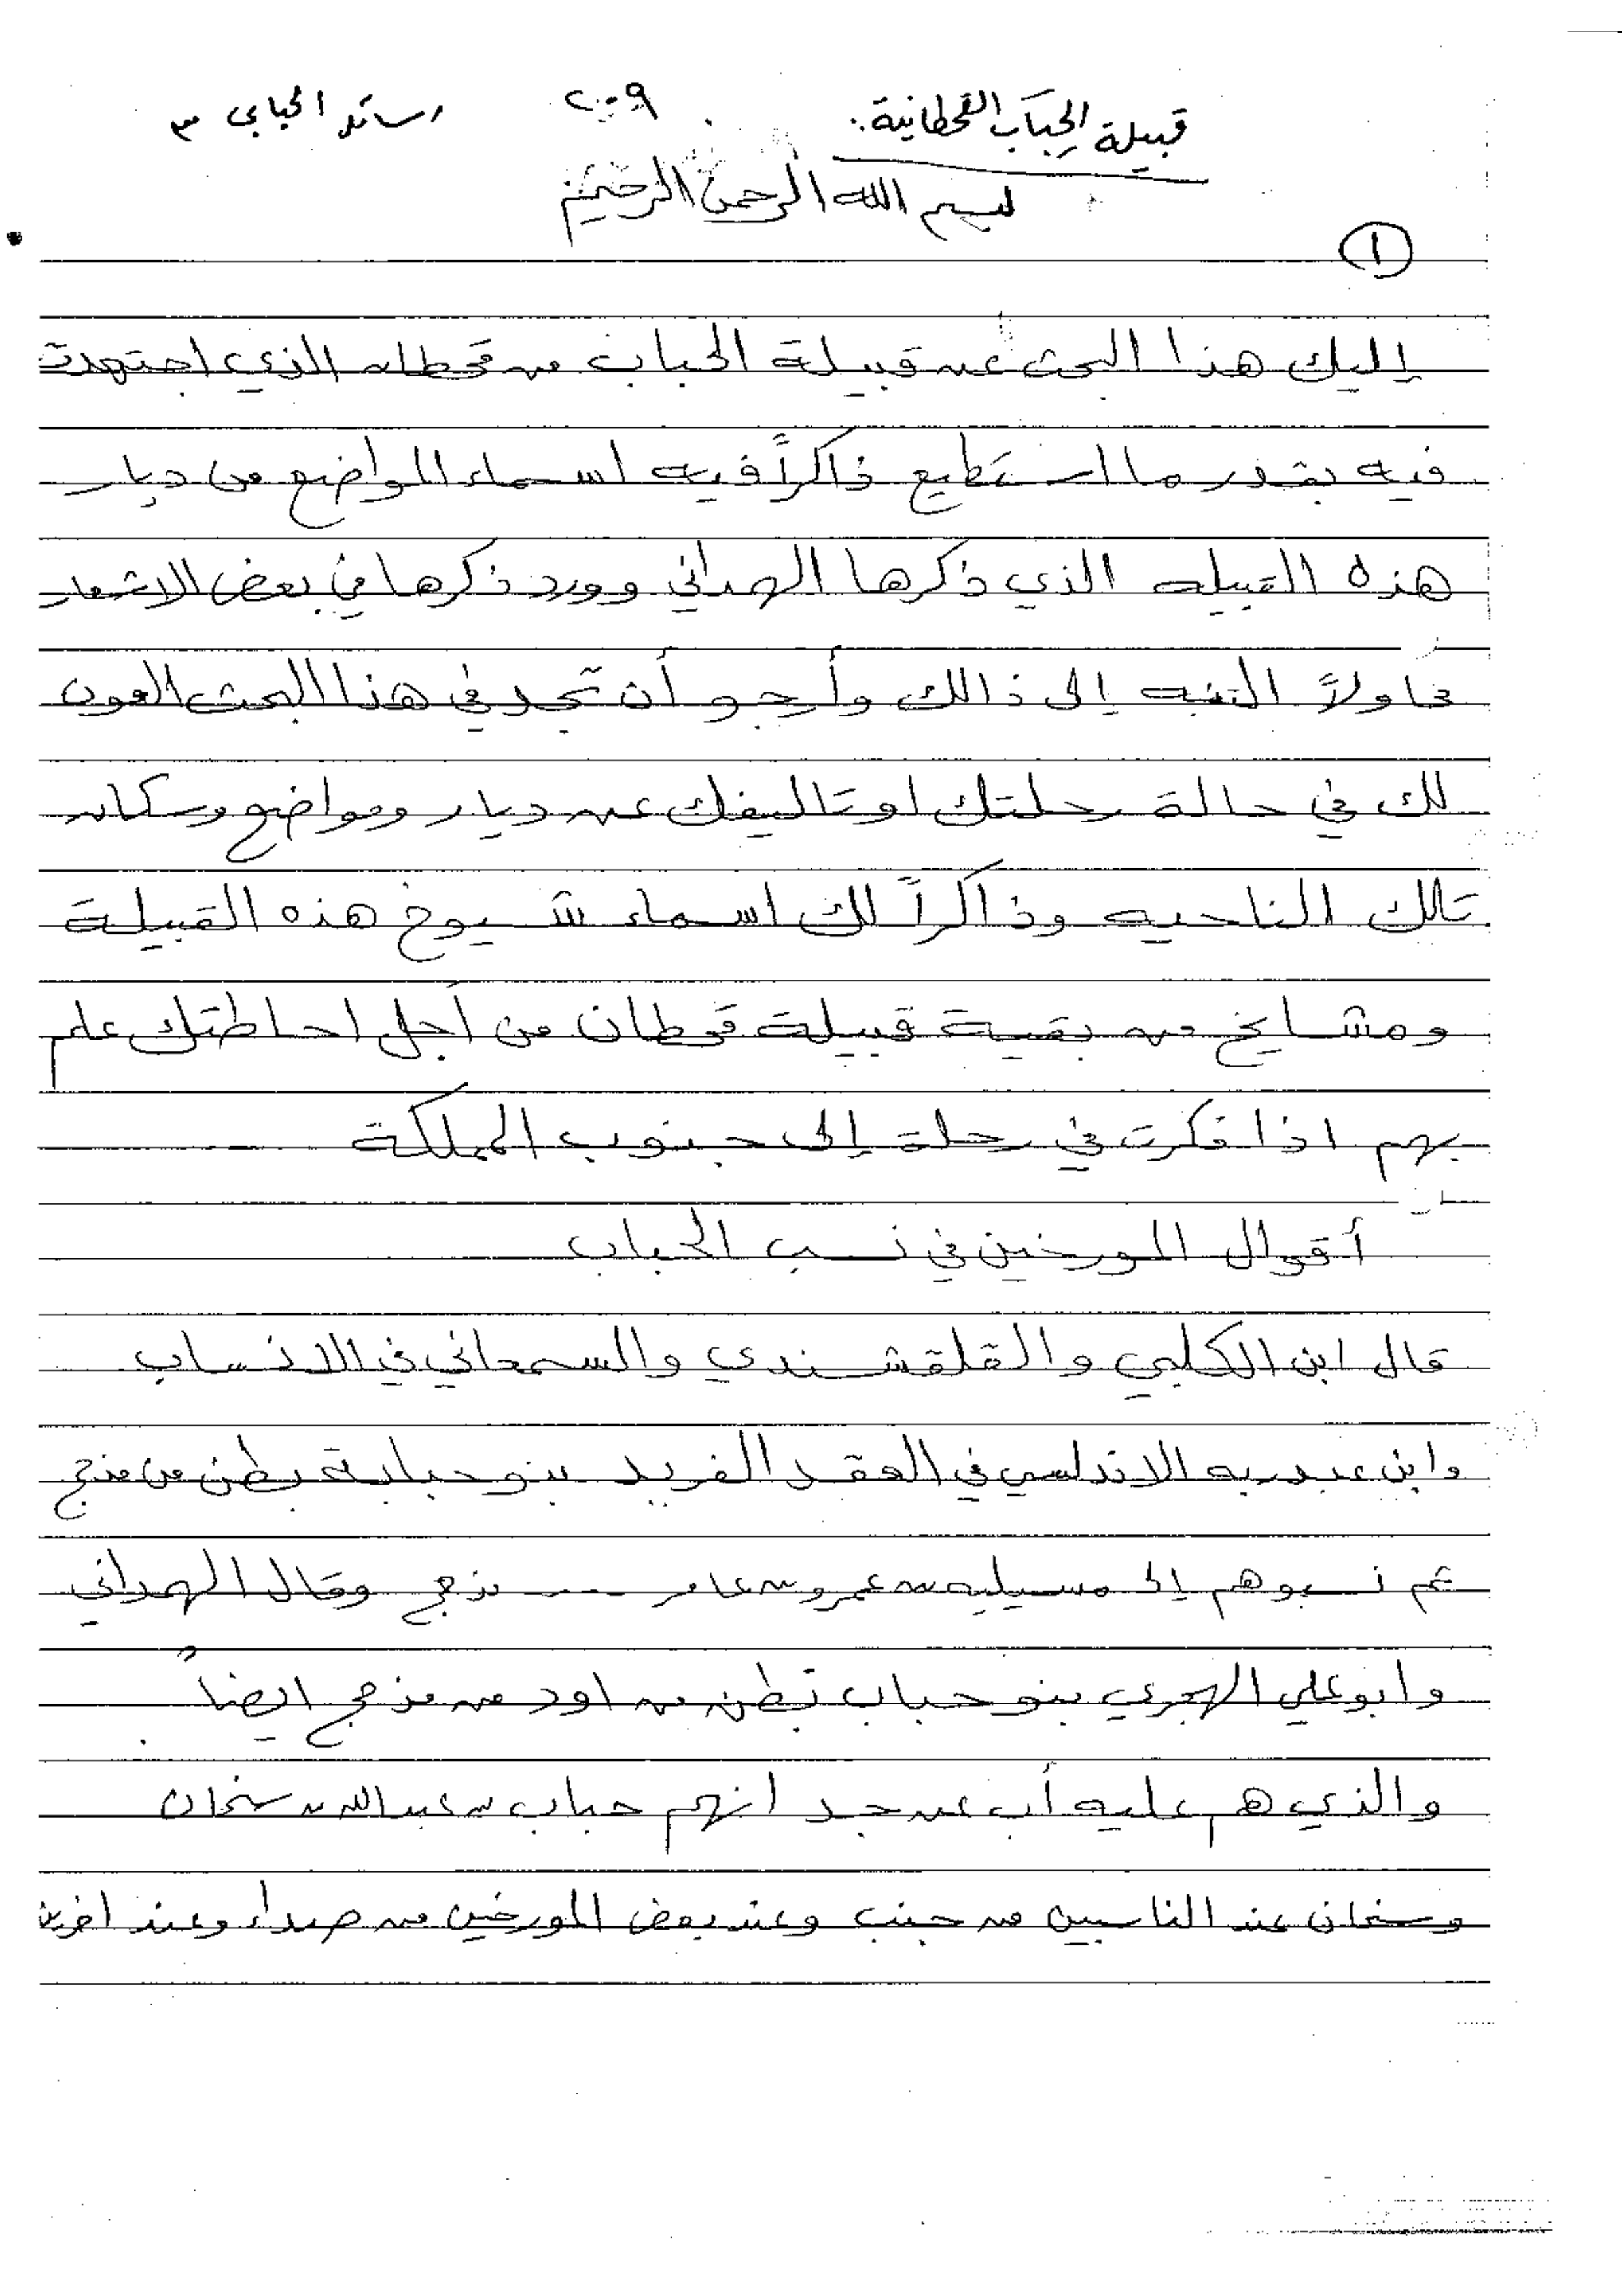 قبيلة الحباب القحطانية:
٢٠٠٩
رسائل الحبابي ٣
بسم الله الرحمن الرحيم
١
إليك هذا البحث عن قبيلة الحباب من قحطان الذي اجتهدت
فيه بقدر ما استطيع ذاكراً فيه اسماء المواضع من ديار
هذه القبيله الذي ذكرها الهمداني وورد ذكرها في بعض الاشعار
محاولاً التنبه إلى ذالك وأرجو أن تجد في هذا البحث العون
لك في حالة رحلتك او تاليفك عن ديار ومواضع وسكان
تالك الناحيه وذاكراً لك اسماء شيوخ هذه القبيلة
ومشايخ من بقية قبيلة قحطان من أجل احاطتك علم
بهم اذا فكرت في رحلة إلى جنوب المملكة
أقوال المورخين في نسب الحباب
قال ابن الكلبي والقلقشندي والسمعاني في الانساب
وابن عبدربه الاندلسي في العقد الفريد بنو حبابة بطن من مذحج
ثم نسبوهم إلى مسيليه بن عمرو بن عامر ---- مذحج وقال الهمداني
وابو علي الهجري بنو حباب بطن من اود من مذحج ايضاً
والذي هم عليه أب عن جد انهم حباب بن عبدالله بن سنحان
وسنحان عند الناسبين من جنب وعند بعض المورخين من صداء وعند اخرين